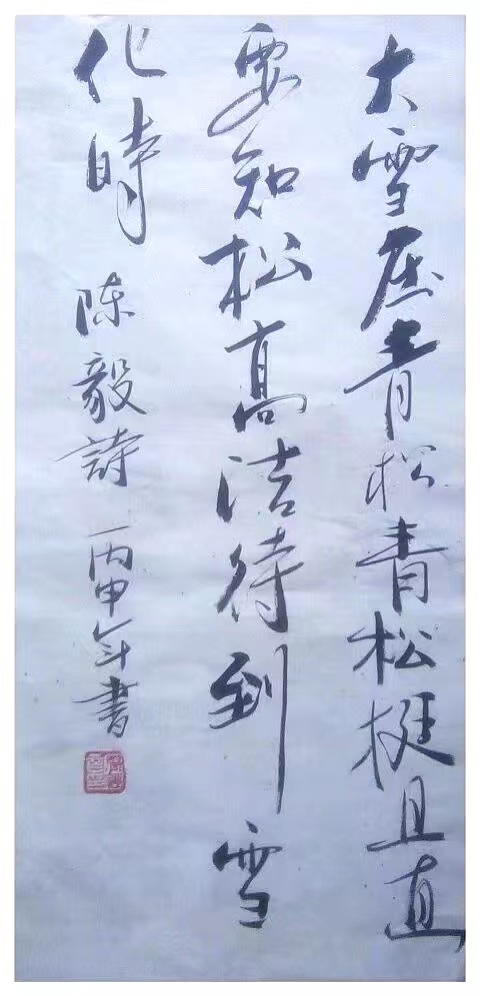 大雪压青松青松挺且直
要知松高洁待到雪
化時
陈毅詩 丙申年書